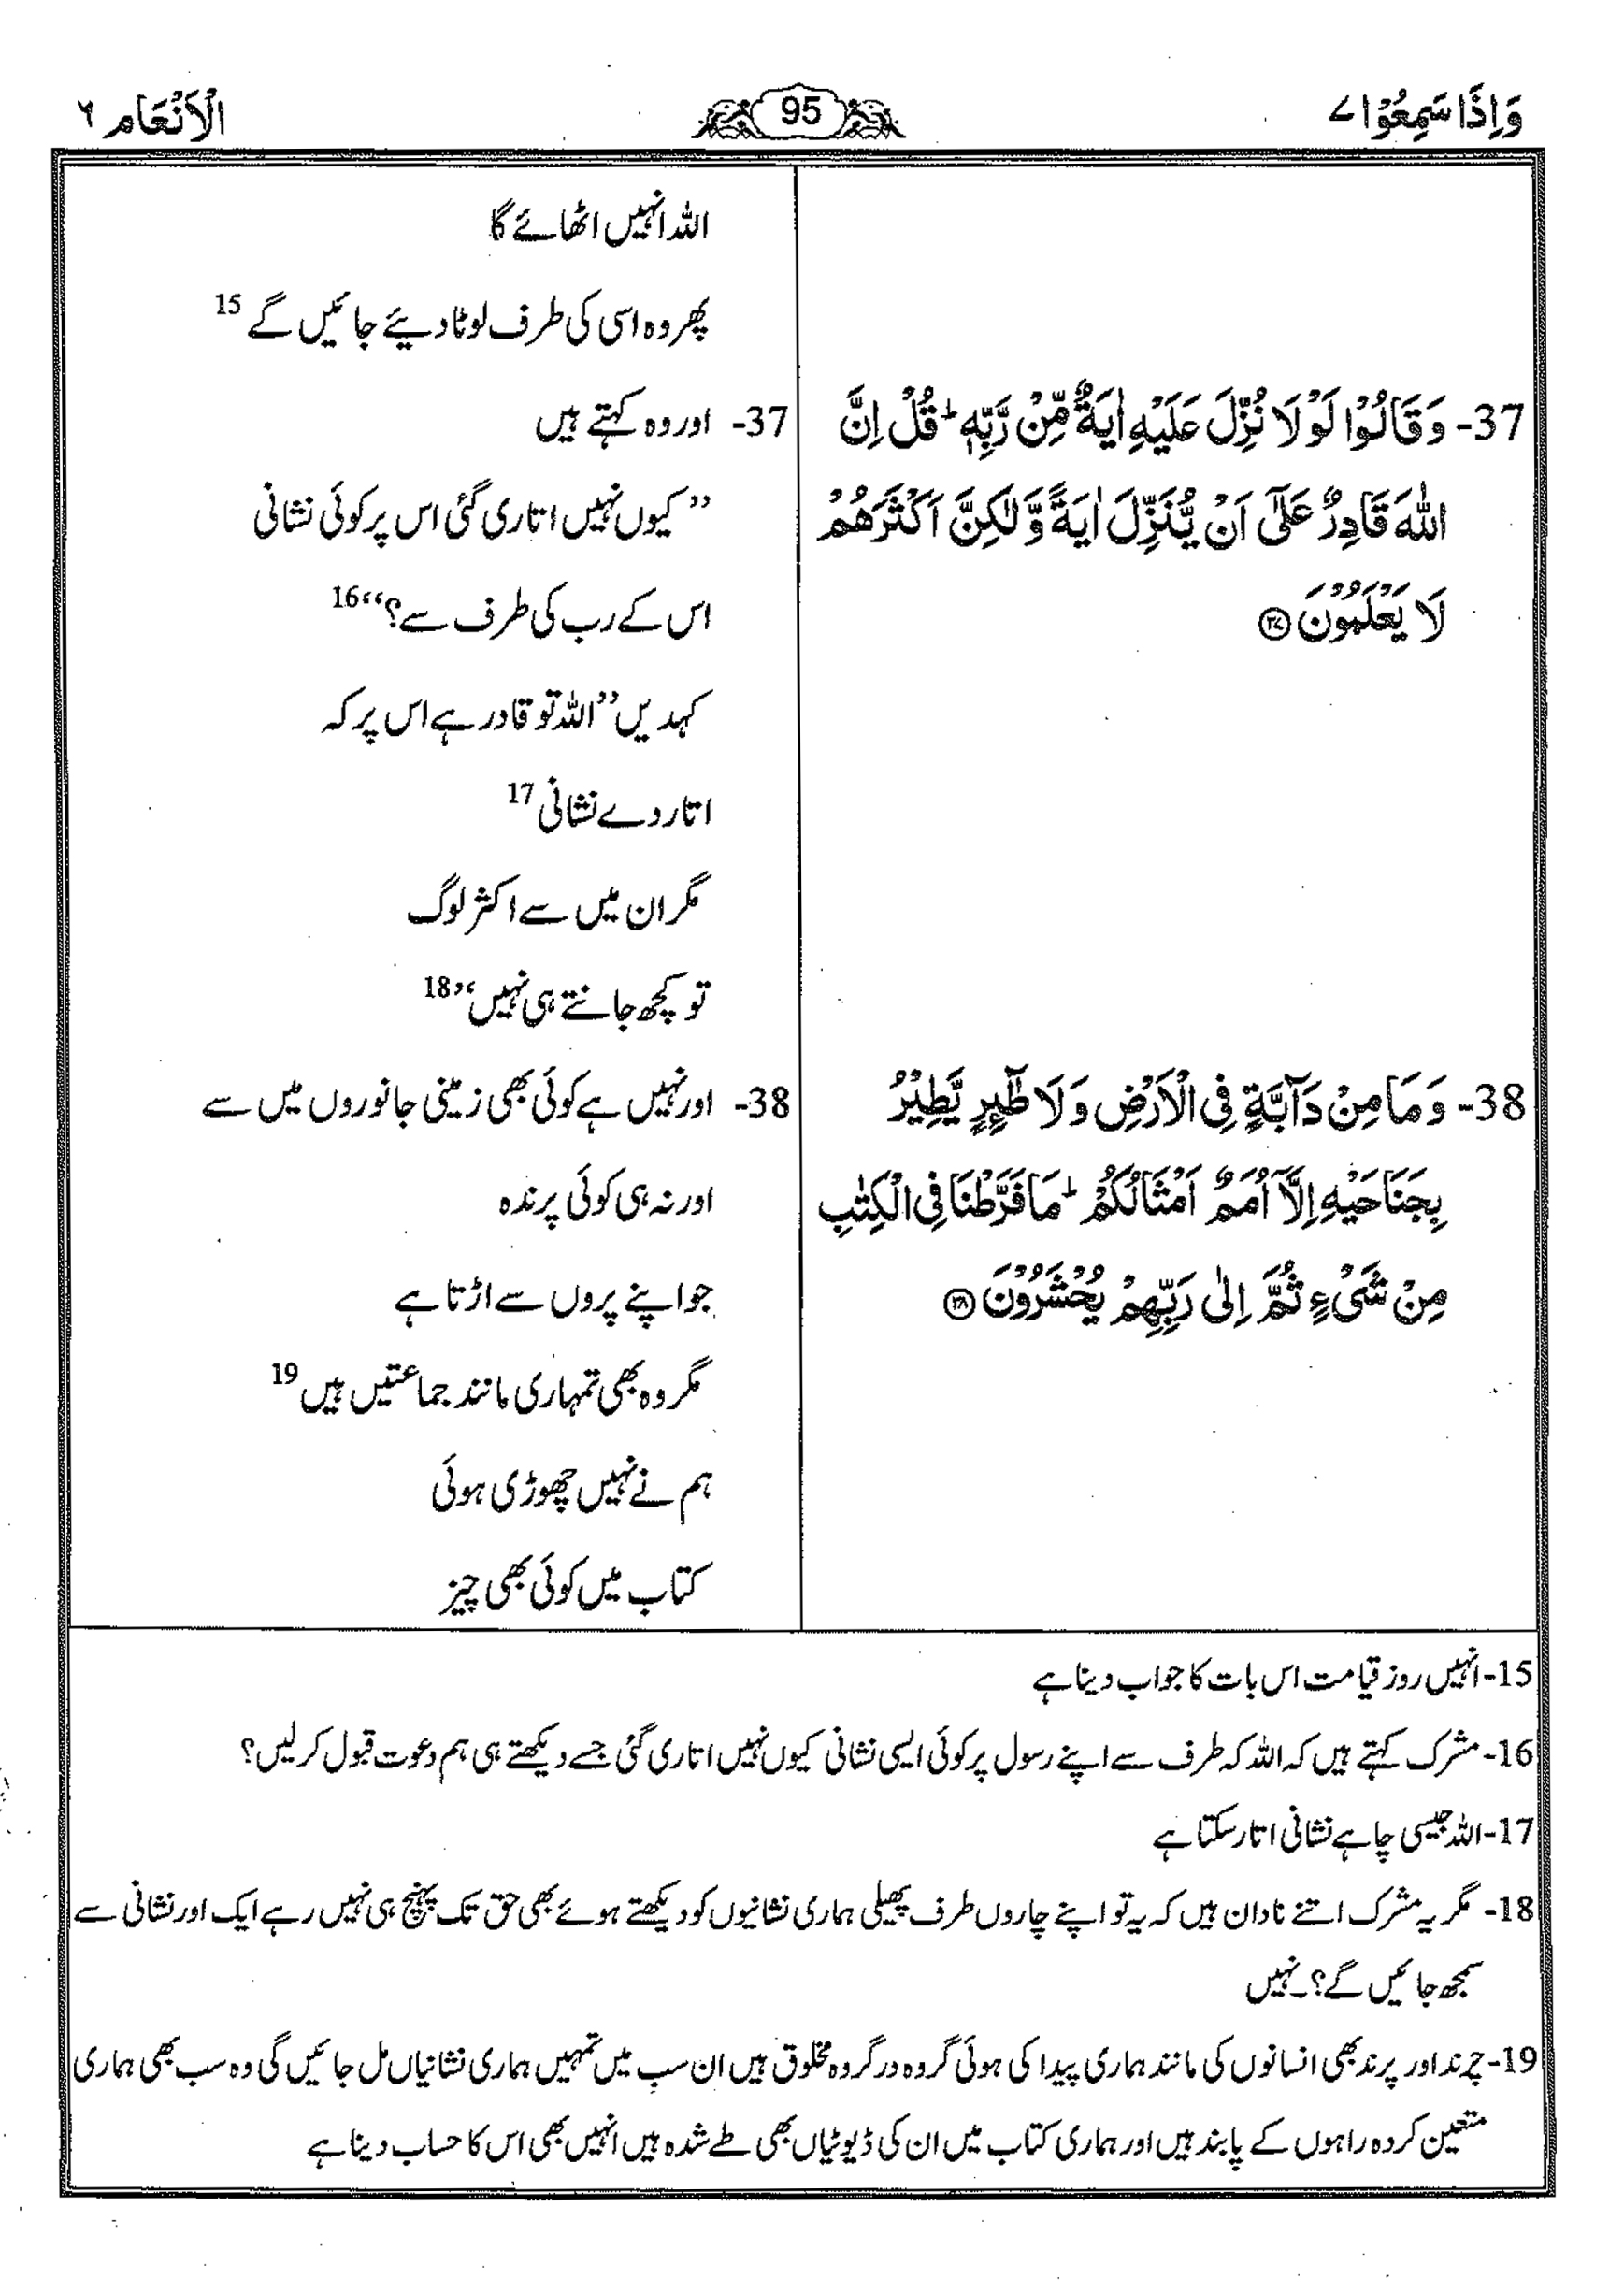 وَاِذَا سَمِعُوْا ۷
95
الْاَنْعَام ۶
37- وَقَالُوْا لَوْ لَا نُزِّلَ عَلَیْهِ اٰیَةٌ مِّنْ رَّبِّهٖ ؕ قُلْ اِنَّ
اللّٰهَ قَادِرٌ عَلٰۤی اَنْ یُّنَزِّلَ اٰیَةً وَّ لٰكِنَّ اَكْثَرَهُمْ
لَا یَعْلَمُوْنَ ﴿۳۷﴾
38- وَ مَا مِنْ دَآبَّةٍ فِی الْاَرْضِ وَ لَا طٰٓىِٕرٍ یَّطِیْرُ
بِجَنَاحَیْهِ اِلَّاۤ اُمَمٌ اَمْثَالُكُمْ ؕ مَا فَرَّطْنَا فِی الْكِتٰبِ
مِنْ شَیْءٍ ثُمَّ اِلٰی رَبِّهِمْ یُحْشَرُوْنَ ﴿۳۸﴾
اللہ انہیں اٹھائے گا
پھر وہ اسی کی طرف لوٹا دیئے جائیں گے 15
37- اور وہ کہتے ہیں
’’کیوں نہیں اتاری گئی اس پر کوئی نشانی
اس کے رب کی طرف سے؟‘‘16
کہدیں ’’اللہ تو قادر ہے اس پر کہ
اتار دے نشانی 17
مگر ان میں سے اکثر لوگ
تو کچھ جانتے ہی نہیں‘‘18
38- اور نہیں ہے کوئی بھی زمینی جانوروں میں سے
اور نہ ہی کوئی پرندہ
جو اپنے پروں سے اڑتا ہے
مگر وہ بھی تمہاری مانند جماعتیں ہیں 19
ہم نے نہیں چھوڑی ہوئی
کتاب میں کوئی بھی چیز
15- انہیں روز قیامت اس بات کا جواب دینا ہے
16- مشرک کہتے ہیں کہ اللہ کہ طرف سے اپنے رسول پر کوئی ایسی نشانی کیوں نہیں اتاری گئی جسے دیکھتے ہی ہم دعوت قبول کر لیں؟
17- اللہ جیسی چاہے نشانی اتار سکتا ہے
18- مگر یہ مشرک اتنے نادان ہیں کہ یہ تو اپنے چاروں طرف پھیلی ہماری نشانیوں کو دیکھتے ہوئے بھی حق تک پہنچ ہی نہیں رہے ایک اور نشانی سے
سمجھ جائیں گے؟۔ نہیں
19- چرند اور پرند بھی انسانوں کی مانند ہماری پیدا کی ہوئی گروہ در گروہ مخلوق ہیں ان سب میں تمہیں ہماری نشانیاں مل جائیں گی وہ سب بھی ہماری
متعین کردہ راہوں کے پابند ہیں اور ہماری کتاب میں ان کی ڈیوٹیاں بھی طے شدہ ہیں انہیں بھی اس کا حساب دینا ہے